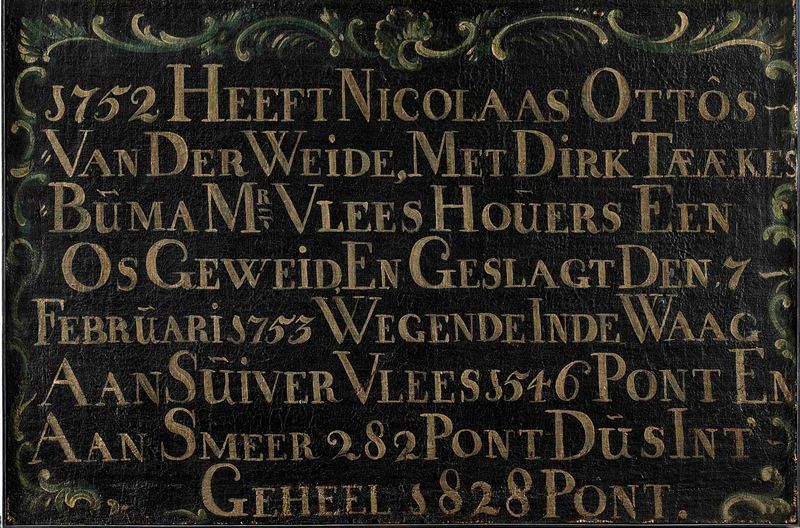 1752 HEEFT NICOLAAS OTTÔS -
VAN DER WEIDE, MET DIRK TÆÆKES
BŨMA MR VLEES HOŪERS EEN
OS GEWEID, EN GESLAGT DEN. 7 -
FEBRŨARI 1753 WEGENDE INDE WAAG
AAN SŨIVER VLEES 1546 PONT EN
AAN SMEER 282 PONT DŨS INT -
GEHEEL 1828 PONT.